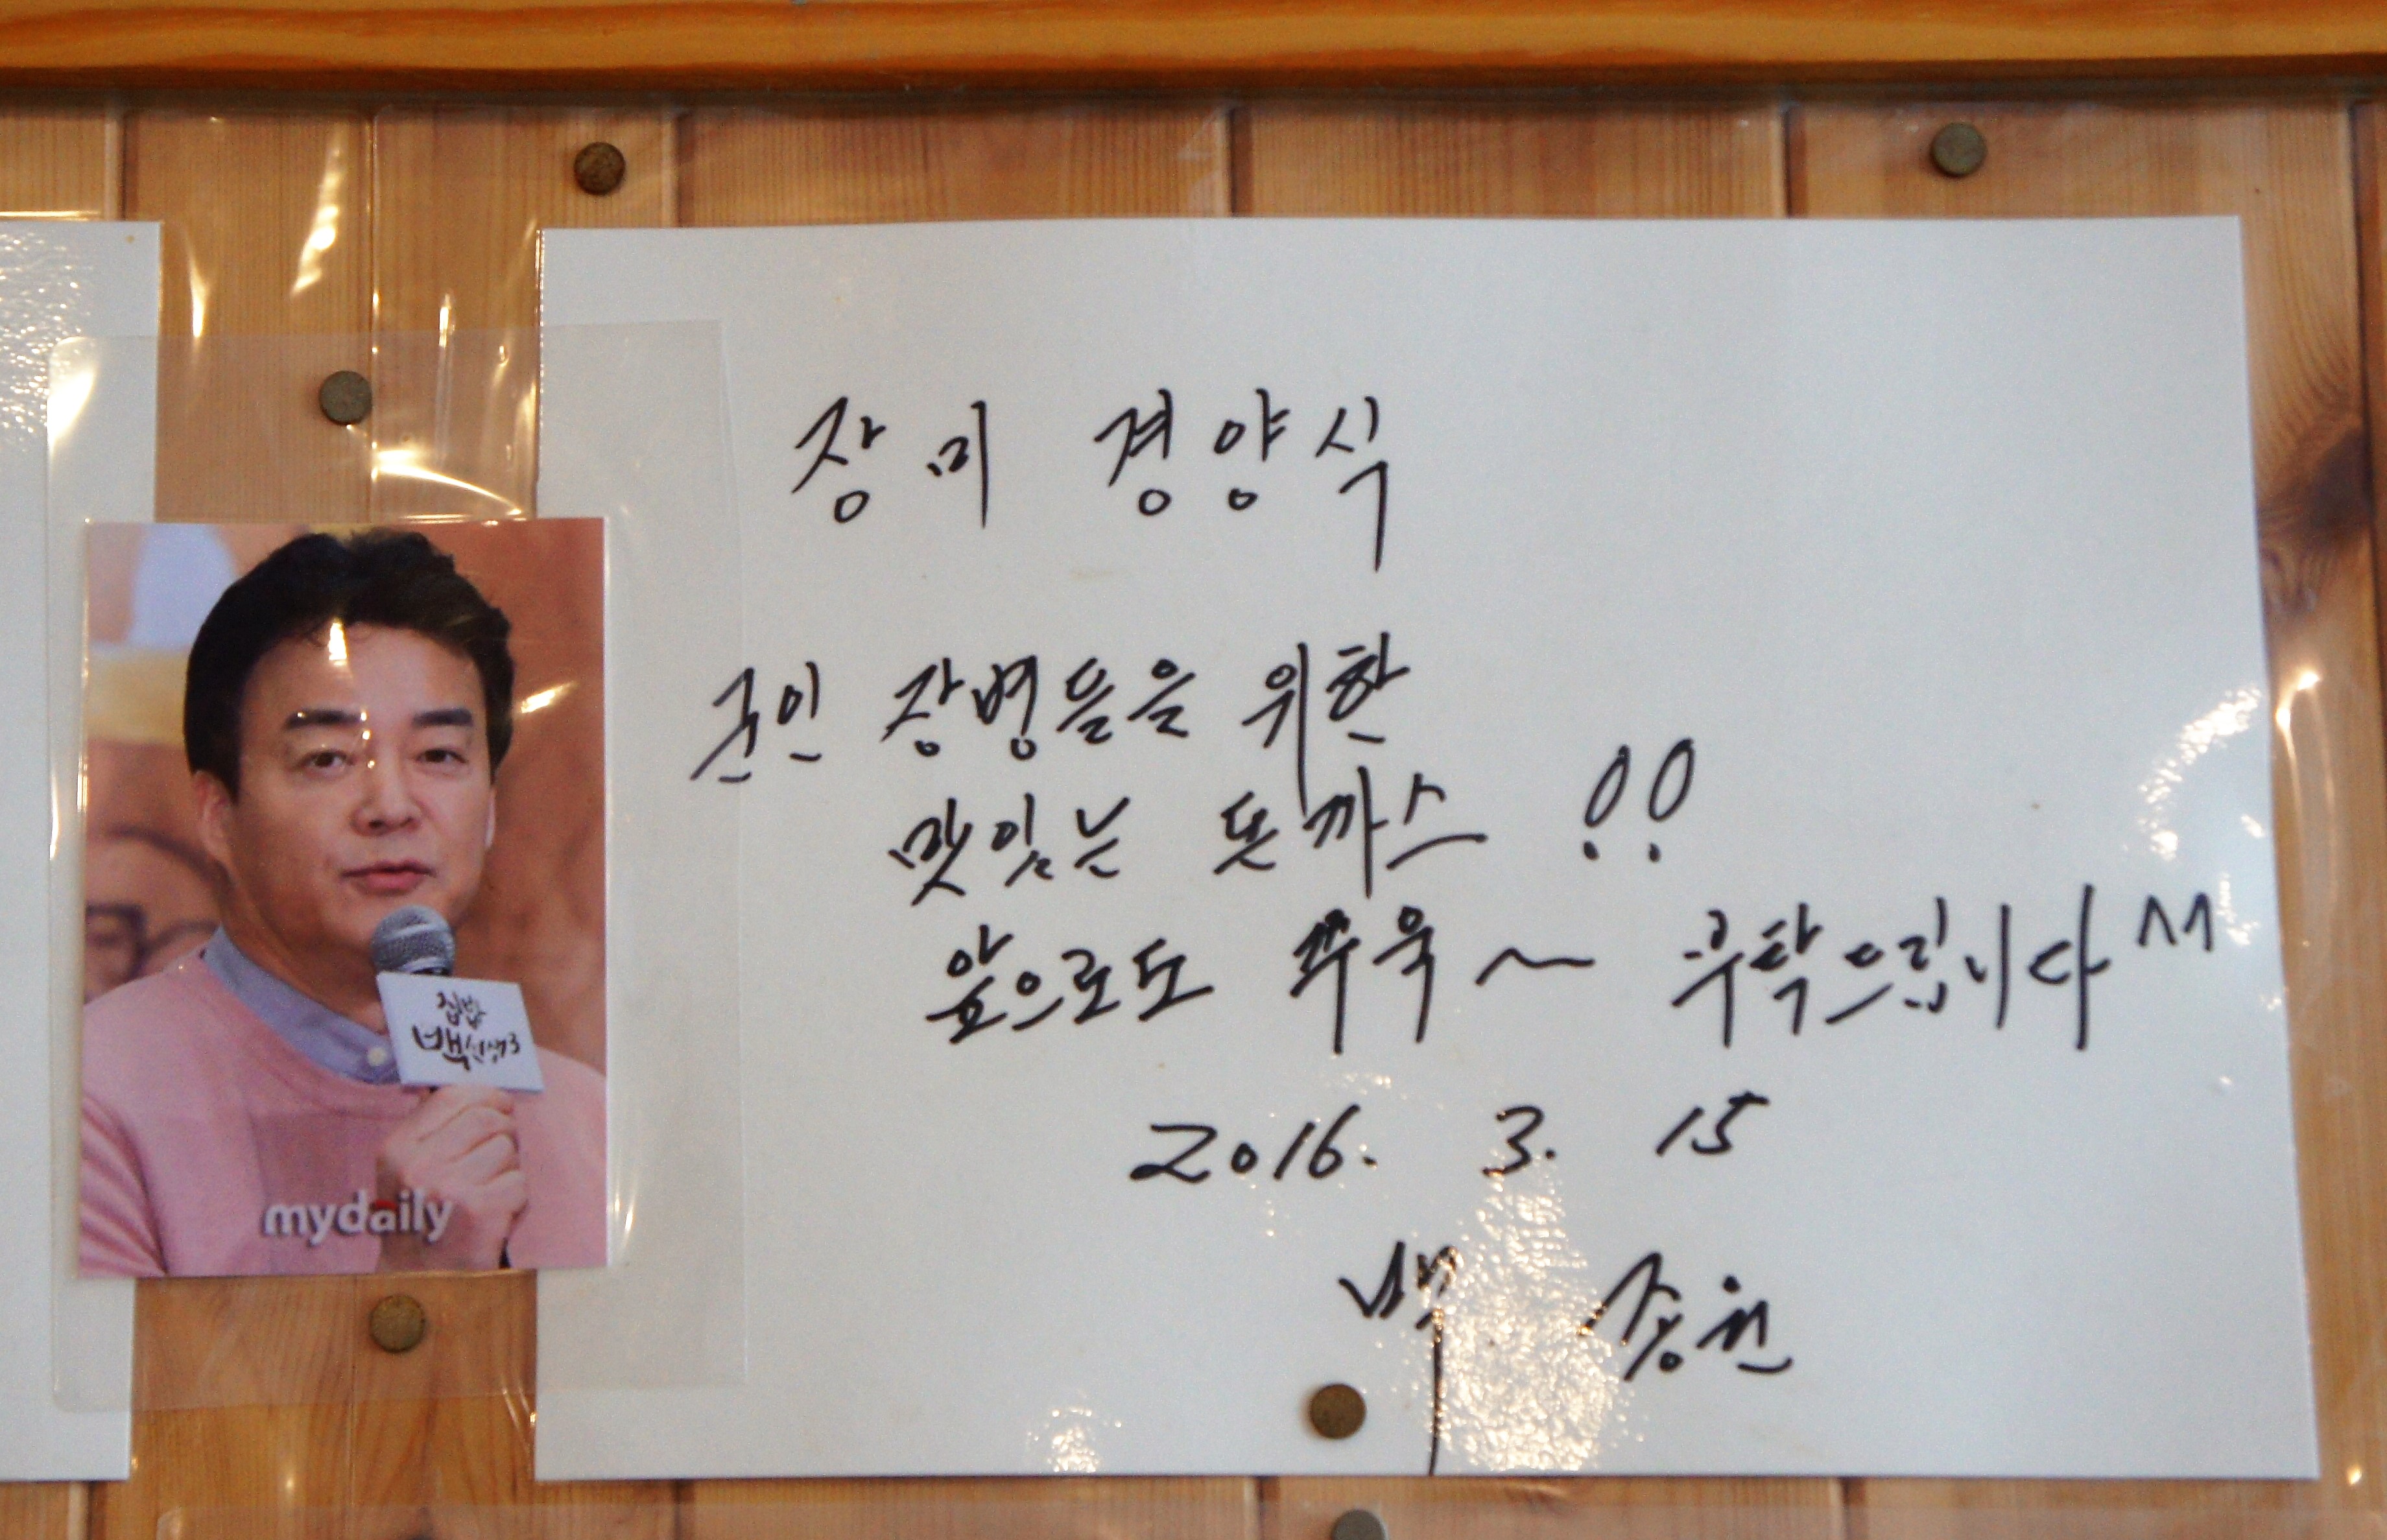 장미 경양식
군인 장병들을 위한
맛있는 돈까스 !!
앞으로도 쭈욱~ 부탁드립니다^^
2016. 3. 15
백종원
집밥
백선생3
mydaily